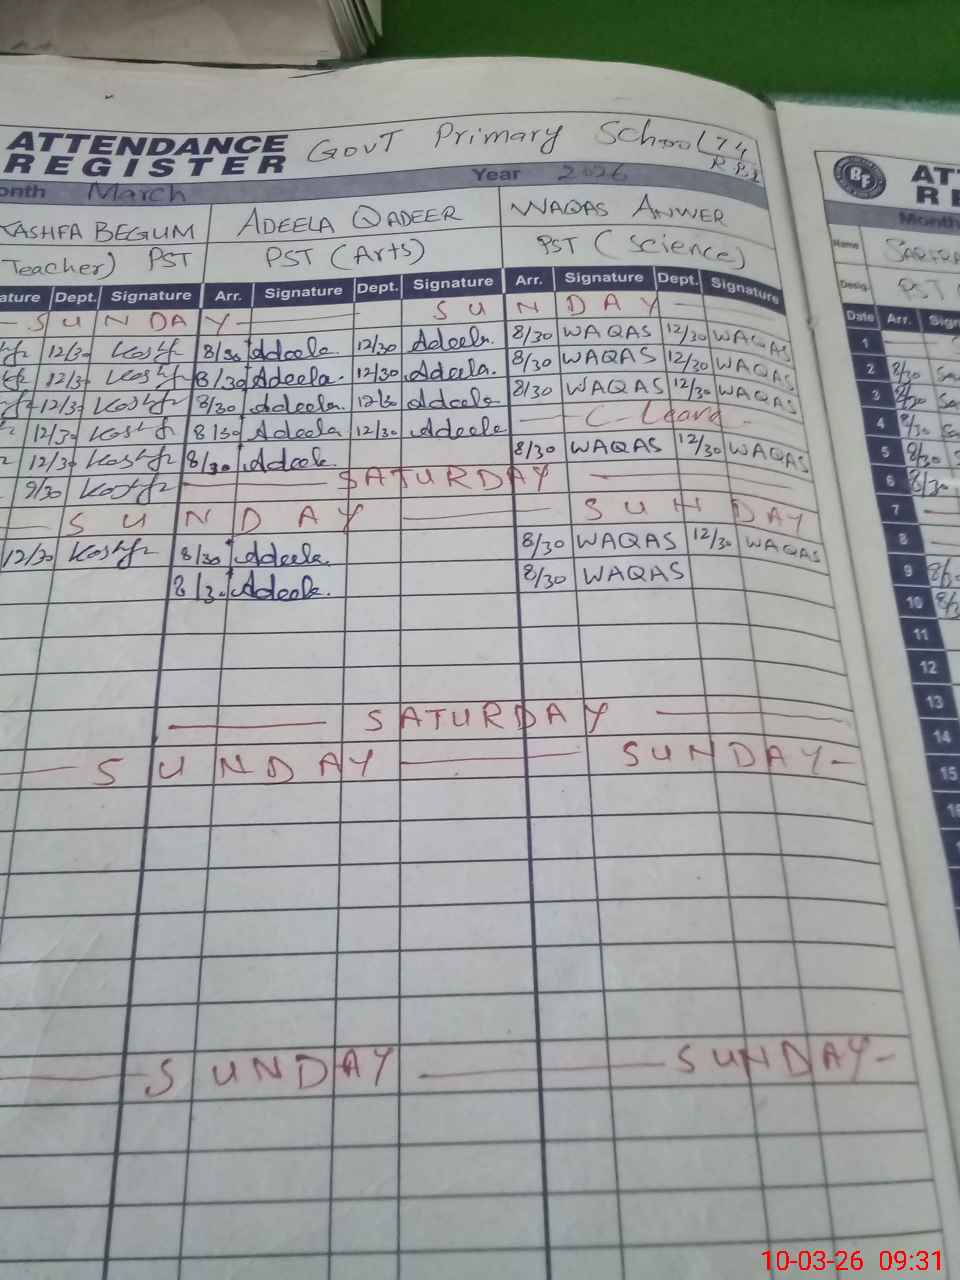 ATTENDANCE REGISTER GovT Primary School 74
Month March Year 2026
KASHFA BEGUM ADEELA QADEER WAQAS ANWER
Teacher) PST PST (Arts) PST (Science)
Dept. Signature Arr. Signature Dept. Signature Arr. Signature Dept. Signature
SUNDAY SUNDAY
12/30 Kashf 8/30 Adeela 12/30 Adeela 8/30 WAQAS 12/30 WAQAS
12/30 Kashf 8/30 Adeela 12/30 Adeela 8/30 WAQAS 12/30 WAQAS
12/30 Kashf 8/30 Adeela 12/30 Adeela 8/30 WAQAS 12/30 WAQAS
12/30 Kashf 8/30 Adeela 12/30 Adeela C-Leave
12/30 Kashf 8/30 Adeela 8/30 WAQAS 12/30 WAQAS
9/30 Kashf SATURDAY
SUNDAY SUNDAY
12/30 Kashf 8/30 Adeela 8/30 WAQAS 12/30 WAQAS
8/30 Adeela 8/30 WAQAS
SATURDAY
SUNDAY SUNDAY
SUNDAY SUNDAY
BF
Month
Name
Desig. PST
Date Arr.
1
2 8/30
3 8/30
4 8/30
5 8/30
6 8/30
7
8
9
10
11
12
13
14
15
10-03-26 09:31